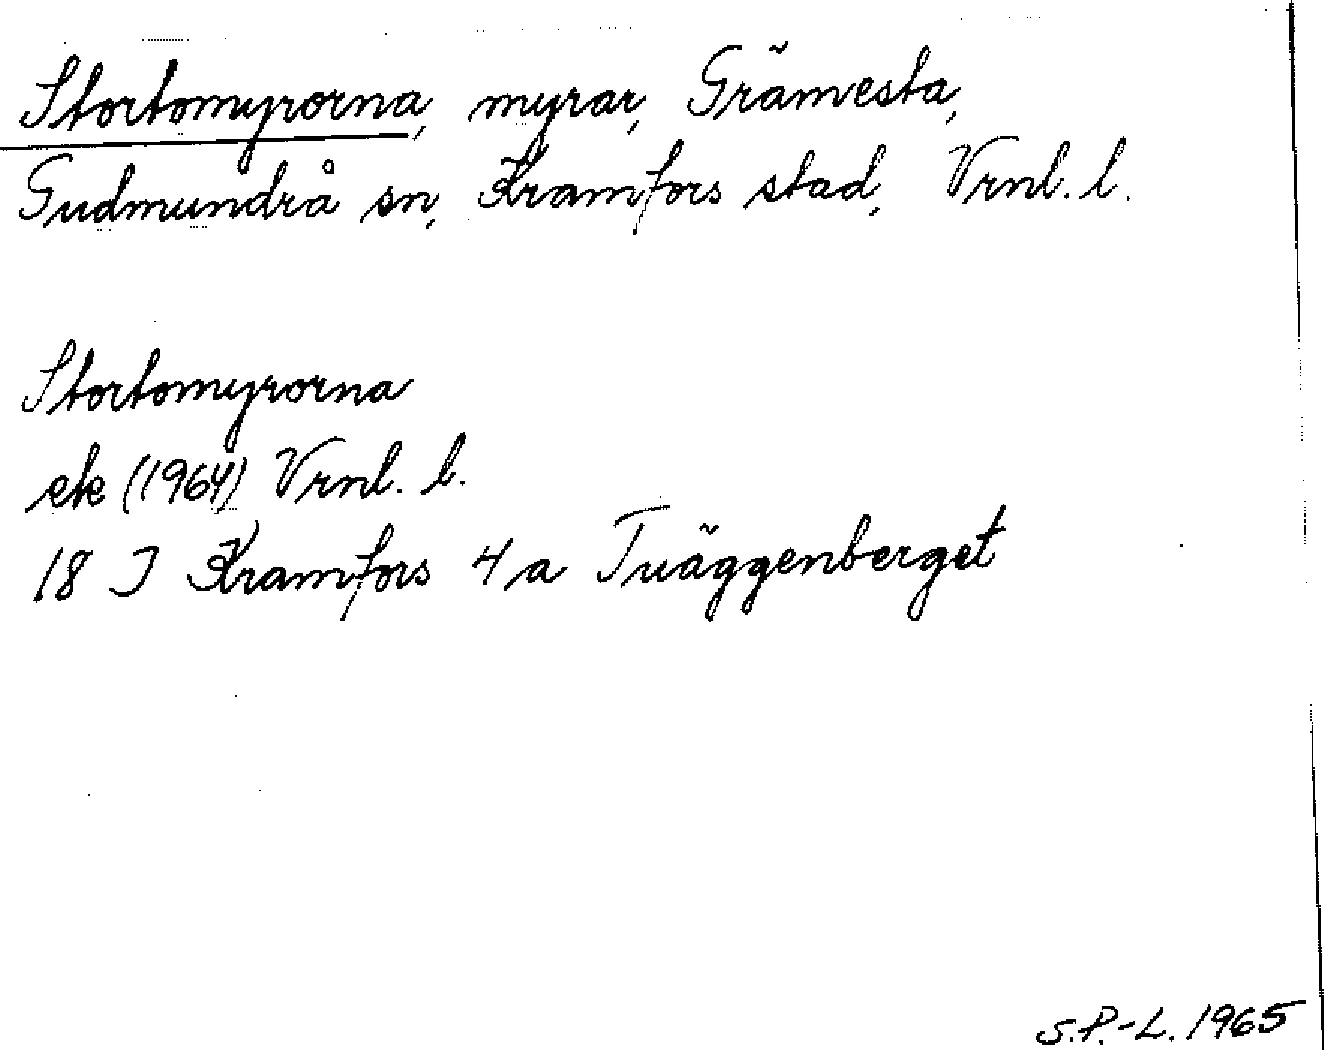 Stortomyrorna, myrar, Grämesta,
Gudmundrå sn, Kramfors stad, Vrnl. l.
Stortomyrorna
ek (1964) Vrnl. l.
18 I Kramfors 4 a Tväggenberget
S.P.-L. 1965